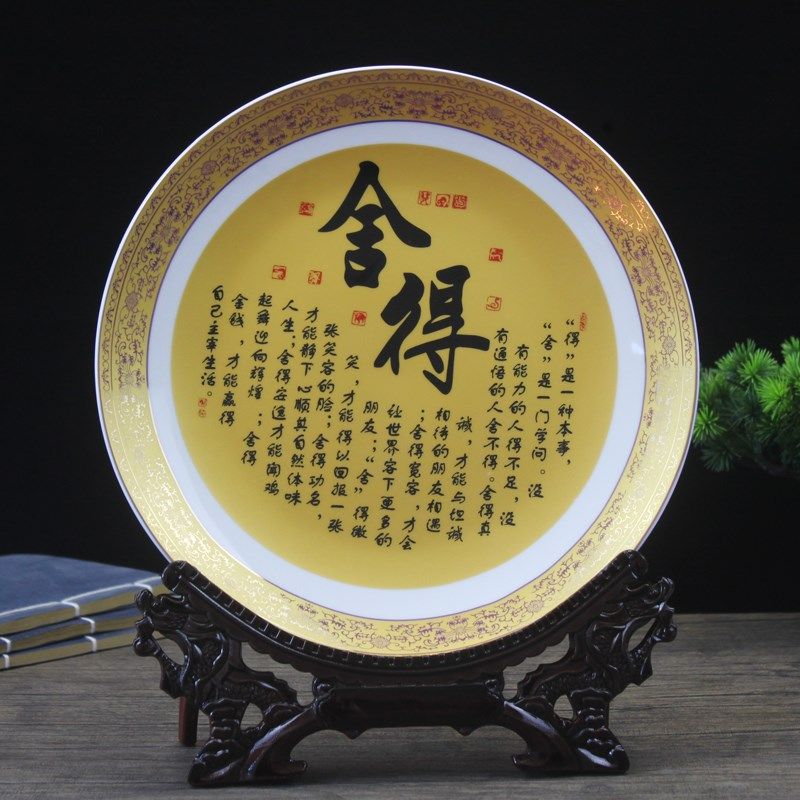 舍得
“得”是一种本事，
“舍”是一门学问。没
有能力的人得不足，没
有通悟的人舍不得。舍得真
诚，才能与坦诚
相待的朋友相遇
；舍得宽容，才会
让世界容下更多的
朋友；“舍”得微
笑，才能得以回报一张
张笑容的脸；舍得功名，
才能静下心顺其自然体味
人生；舍得安逸才能闻鸡
起舞迎向辉煌；舍得
金钱，才能赢得
自己主宰生活。